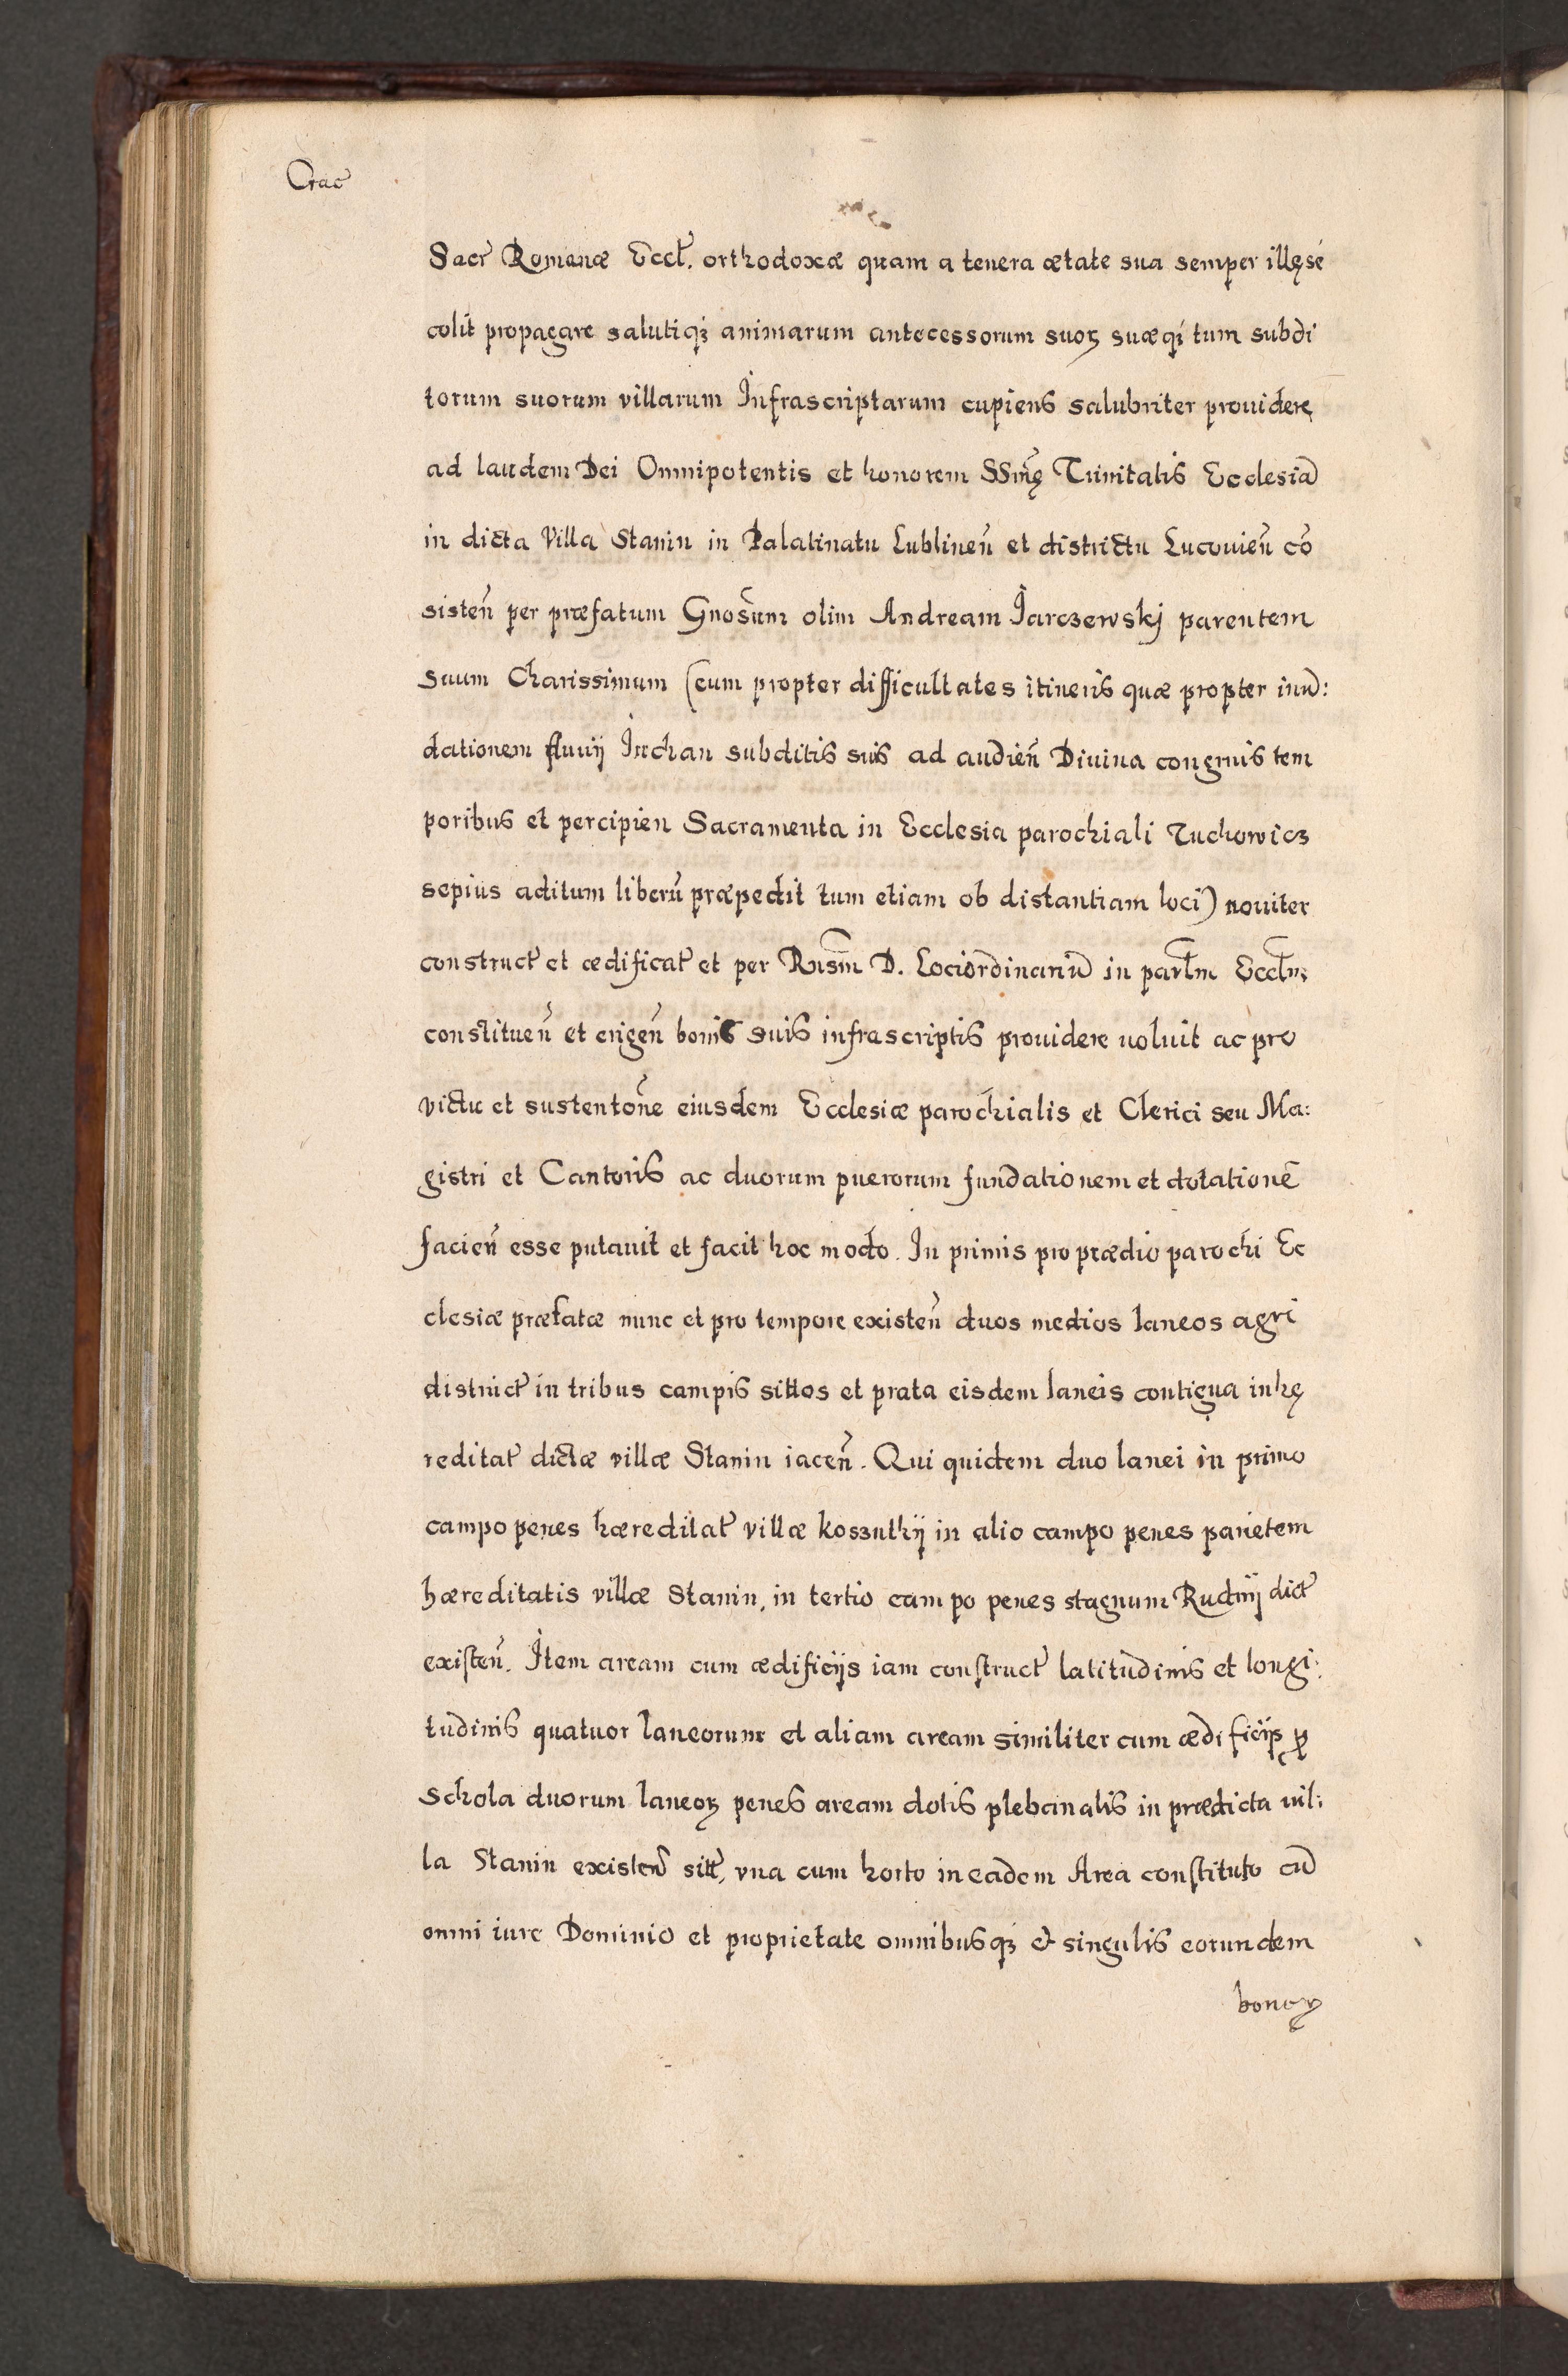 Crac̃
Sacr̃ Romanæ Eccl̃. orthodoxæ quam a tenera ætate sua semper illęsé
colit propagare salutiqꝫ animarum antecessorum suoꝝ suæqꝫ tum subdi
torum suorum villarum Infrascriptarum cupiens salubriter prouidere
ad laudem Dei Omnipotentis et honorem SSm̃ę Trinitatis Ecclesiã
in dicta Villa Stanin in Palatinatu Lublineñ et districtu Lucouieñ cõ
sisteñ per præfatum Gnosũm olim Andream Jarczewskj parentem
suum Charissimum (cum propter difficultates itineris quæ propter inũ:
dationem fluuij Irchan subditis suis ad audieñ Diuina congruis tem
poribus et percipien Sacramenta in Ecclesia parochiali Tuchowicz
sepius aditum liberũ præpedit tum etiam ob distantiam loci) nouiter
construct̃ et ædificat̃ et per Rɪ̃sm̃ D. Lociordinariũ in parl̃m Eccl̃m
constitueñ et erigeñ bonis suis infrascriptis prouidere uoluit ac pro
victu et sustentoñe eiusdem Ecclesiæ parochialis et Clerici seu Ma:
gistri et Cantoris ac duorum puerorum fundationem et dotationẽ
facieñ esse putauit et facit hoc modo. In primis pro prædio parochi Ec
clesiæ præfatæ nunc et pro tempore existeñ duos medios laneos agri
district̃ in tribus campis sittos et prata eisdem laneis contigua in hę
reditat̃ dictæ villæ Stanin iaceñ. Qui quidem duo lanei in primo
campo penes hæreditat̃ villæ koszuthij in alio campo penes parietem
hæreditatis villæ Stanin, in tertio campo penes stagnum Rudnij dict̃
existeñ. Item aream cum ædificijs iam construct̃ latitudinis et longi:
tudinis quatuor laneorum et aliam aream similiter cum ædificijs ꝓ
schola duorum laneoꝝ penes aream dotis plebanalis in prædicta uil:
la Stanin existeñ sitt̃, vna cum horto in eadem Area constituto cũ
omni iure Dominio et proprietate omnibusqꝫ & singulis eorundem
bonoꝝ